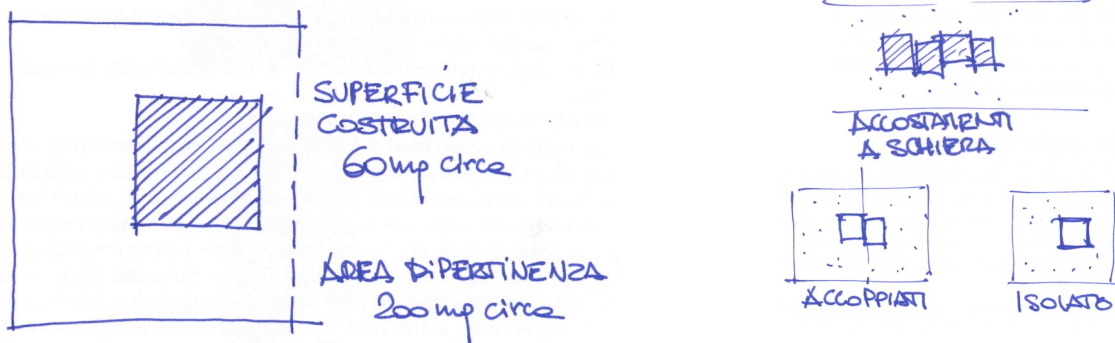 SUPERFICIE
COSTRUITA
60 mq circa
AREA DI PERTINENZA
200 mq circa
ACCOSTAMENTI
A SCHIERA
ACCOPPIATI
ISOLATO